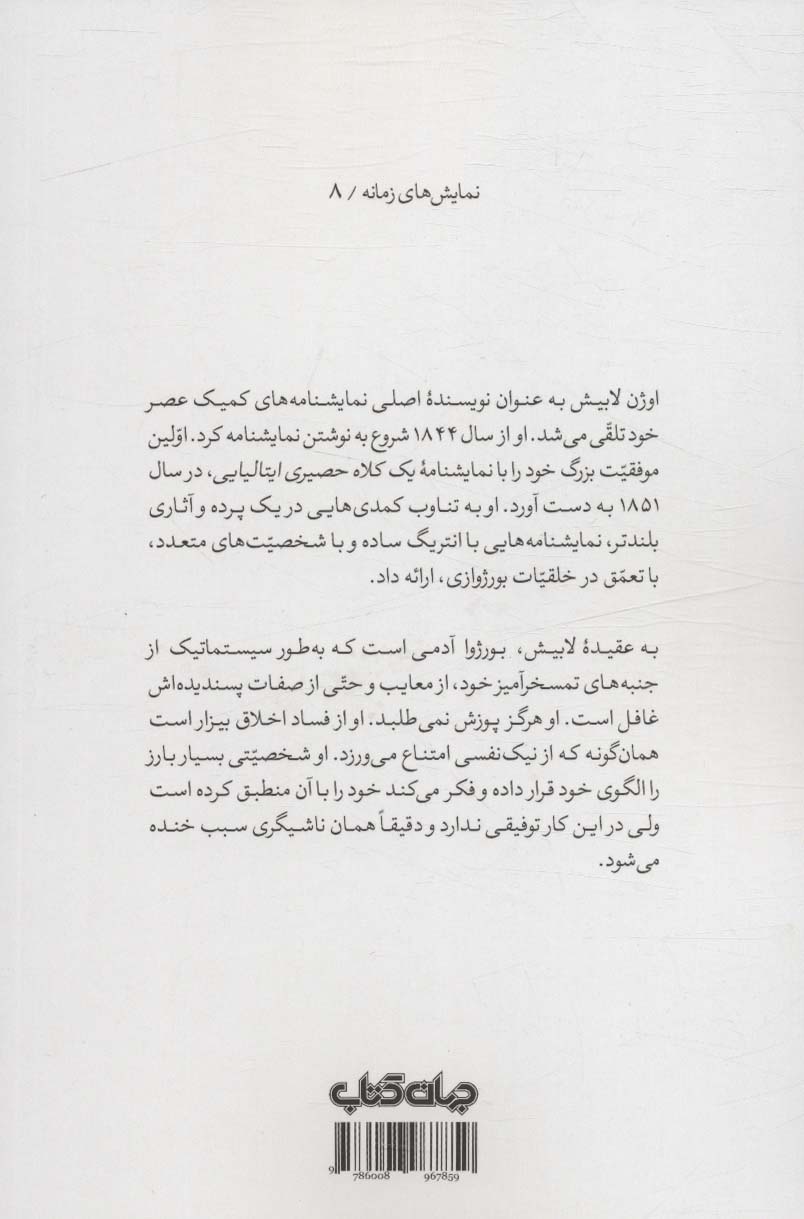 نمایش‌های زمانه / ۸
اوژن لابیش به عنوان نویسندهٔ اصلی نمایشنامه‌های کمیک عصر
خود تلقّی می‌شد. او از سال ۱۸۴۴ شروع به نوشتن نمایشنامه کرد. اوّلین
موفقیّت بزرگ خود را با نمایشنامهٔ یک کلاه حصیری ایتالیایی، در سال
۱۸۵۱ به دست آورد. او به تناوب کمدی‌هایی در یک پرده و آثاری
بلندتر، نمایشنامه‌هایی با انتریگ ساده و با شخصیّت‌های متعدد،
با تعمّق در خلقیّات بورژوازی، ارائه داد.
به عقیدهٔ لابیش، بورژوا آدمی است که به‌طور سیستماتیک از
جنبه‌های تمسخرآمیز خود، از معایب و حتّی از صفات پسندیده‌اش
غافل است. او هرگز پوزش نمی‌طلبد. او از فساد اخلاق بیزار است
همان‌گونه که از نیک‌نفسی امتناع می‌ورزد. او شخصیّتی بسیار بارز
را الگوی خود قرار داده و فکر می‌کند خود را با آن منطبق کرده است
ولی در این کار توفیقی ندارد و دقیقاً همان ناشیگری سبب خنده
می‌شود.
جهان کتاب
9 786008 967859